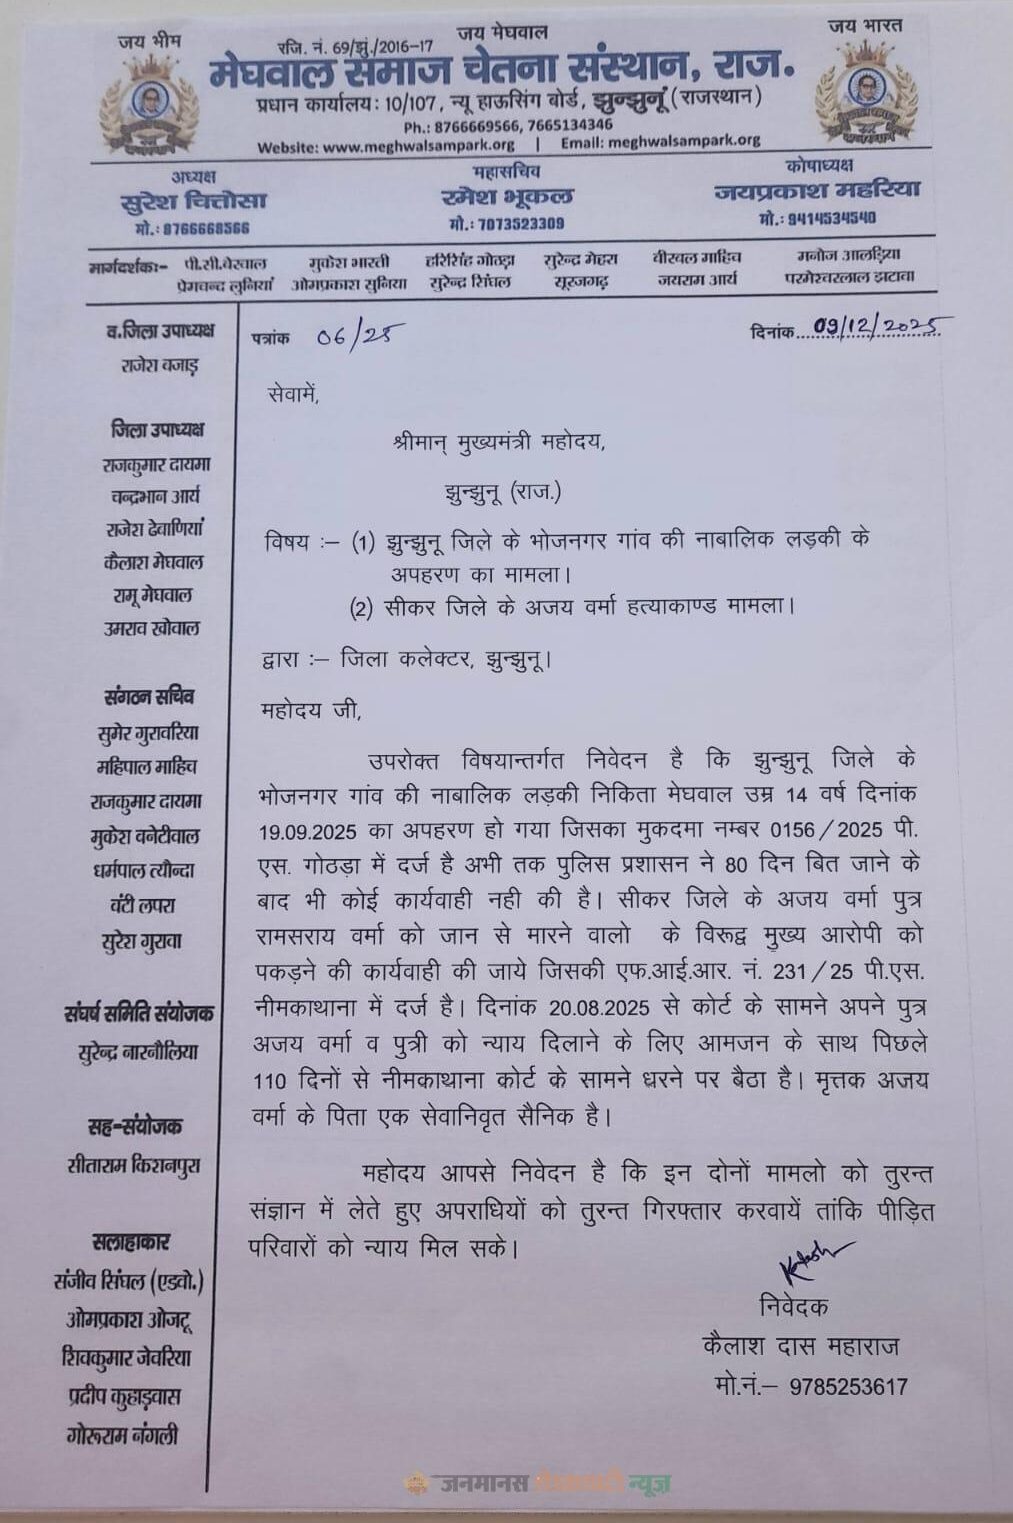 जय भीम
रजि. नं. 69/झुं./2016-17
जय मेघवाल
जय भारत
मेघवाल समाज चेतना संस्थान, राज.
प्रधान कार्यालय: 10/107, न्यू हाऊसिंग बोर्ड, झुन्झुनूं (राजस्थान)
Ph.: 8766669566, 7665134346
Website: www.meghwalsampark.org | Email: meghwalsampark.org
अध्यक्ष
सुरेश चित्तोसा
मो.: 8766668566
महासचिव
रमेश भूकल
मो.: 7073523309
कोषाध्यक्ष
जयप्रकाश महरिया
मो.: 9414534540
मार्गदर्शक:- पी.सी.बेरवाल मुकेश भारती हरिसिंह गोठड़ा सुरेन्द्र मेहरा बीरबल माहिच मनोज आलड़िया
प्रेमचन्द लुनियां ओमप्रकाश सुनिया सुरेन्द्र सिंघल सूरजगढ़ जयराम आर्य परमेश्वरलाल झटावा
व.जिला उपाध्यक्ष
राजेश बजाड़
जिला उपाध्यक्ष
राजकुमार दायमा
चन्द्रभान आर्य
राजेश ढेवाणियां
कैलाश मेघवाल
रामू मेघवाल
उमराव खोवाल
संगठन सचिव
सुमेर गुरावरिया
महिपाल माहिच
राजकुमार दायमा
मुकेश बनेटीवाल
धर्मपाल त्यौन्दा
बंटी लपरा
सुरेश गुरावा
संघर्ष समिति संयोजक
सुरेन्द्र नारनौलिया
सह-संयोजक
सीताराम किशनपुरा
सलाहाकार
संजीव सिंघल (एडवो.)
ओमप्रकाश ओजटू
शिवकुमार जेवरिया
प्रदीप कुहाड़वास
गोरूराम नंगली
पत्रांक 06/25
दिनांक 09/12/2025
सेवामें,
श्रीमान् मुख्यमंत्री महोदय,
झुन्झुनू (राज.)
विषय :– (1) झुन्झुनू जिले के भोजनगर गांव की नाबालिक लड़की के
अपहरण का मामला।
(2) सीकर जिले के अजय वर्मा हत्याकाण्ड मामला।
द्वारा :– जिला कलेक्टर, झुन्झुनू।
महोदय जी,
उपरोक्त विषयान्तर्गत निवेदन है कि झुन्झुनू जिले के
भोजनगर गांव की नाबालिक लड़की निकिता मेघवाल उम्र 14 वर्ष दिनांक
19.09.2025 का अपहरण हो गया जिसका मुकदमा नम्बर 0156/2025 पी.
एस. गोठड़ा में दर्ज है अभी तक पुलिस प्रशासन ने 80 दिन बित जाने के
बाद भी कोई कार्यवाही नही की है। सीकर जिले के अजय वर्मा पुत्र
रामसराय वर्मा को जान से मारने वालो के विरूद्व मुख्य आरोपी को
पकड़ने की कार्यवाही की जाये जिसकी एफ.आई.आर. नं. 231/25 पी.एस.
नीमकाथाना में दर्ज है। दिनांक 20.08.2025 से कोर्ट के सामने अपने पुत्र
अजय वर्मा व पुत्री को न्याय दिलाने के लिए आमजन के साथ पिछले
110 दिनों से नीमकाथाना कोर्ट के सामने धरने पर बैठा है। मृत्तक अजय
वर्मा के पिता एक सेवानिवृत सैनिक है।
महोदय आपसे निवेदन है कि इन दोनों मामलो को तुरन्त
संज्ञान में लेते हुए अपराधियों को तुरन्त गिरफ्तार करवायें तांकि पीड़ित
परिवारों को न्याय मिल सके।
Kailash
निवेदक
कैलाश दास महाराज
मो.नं.– 9785253617
जनमानस शेखावाटी न्यूज़